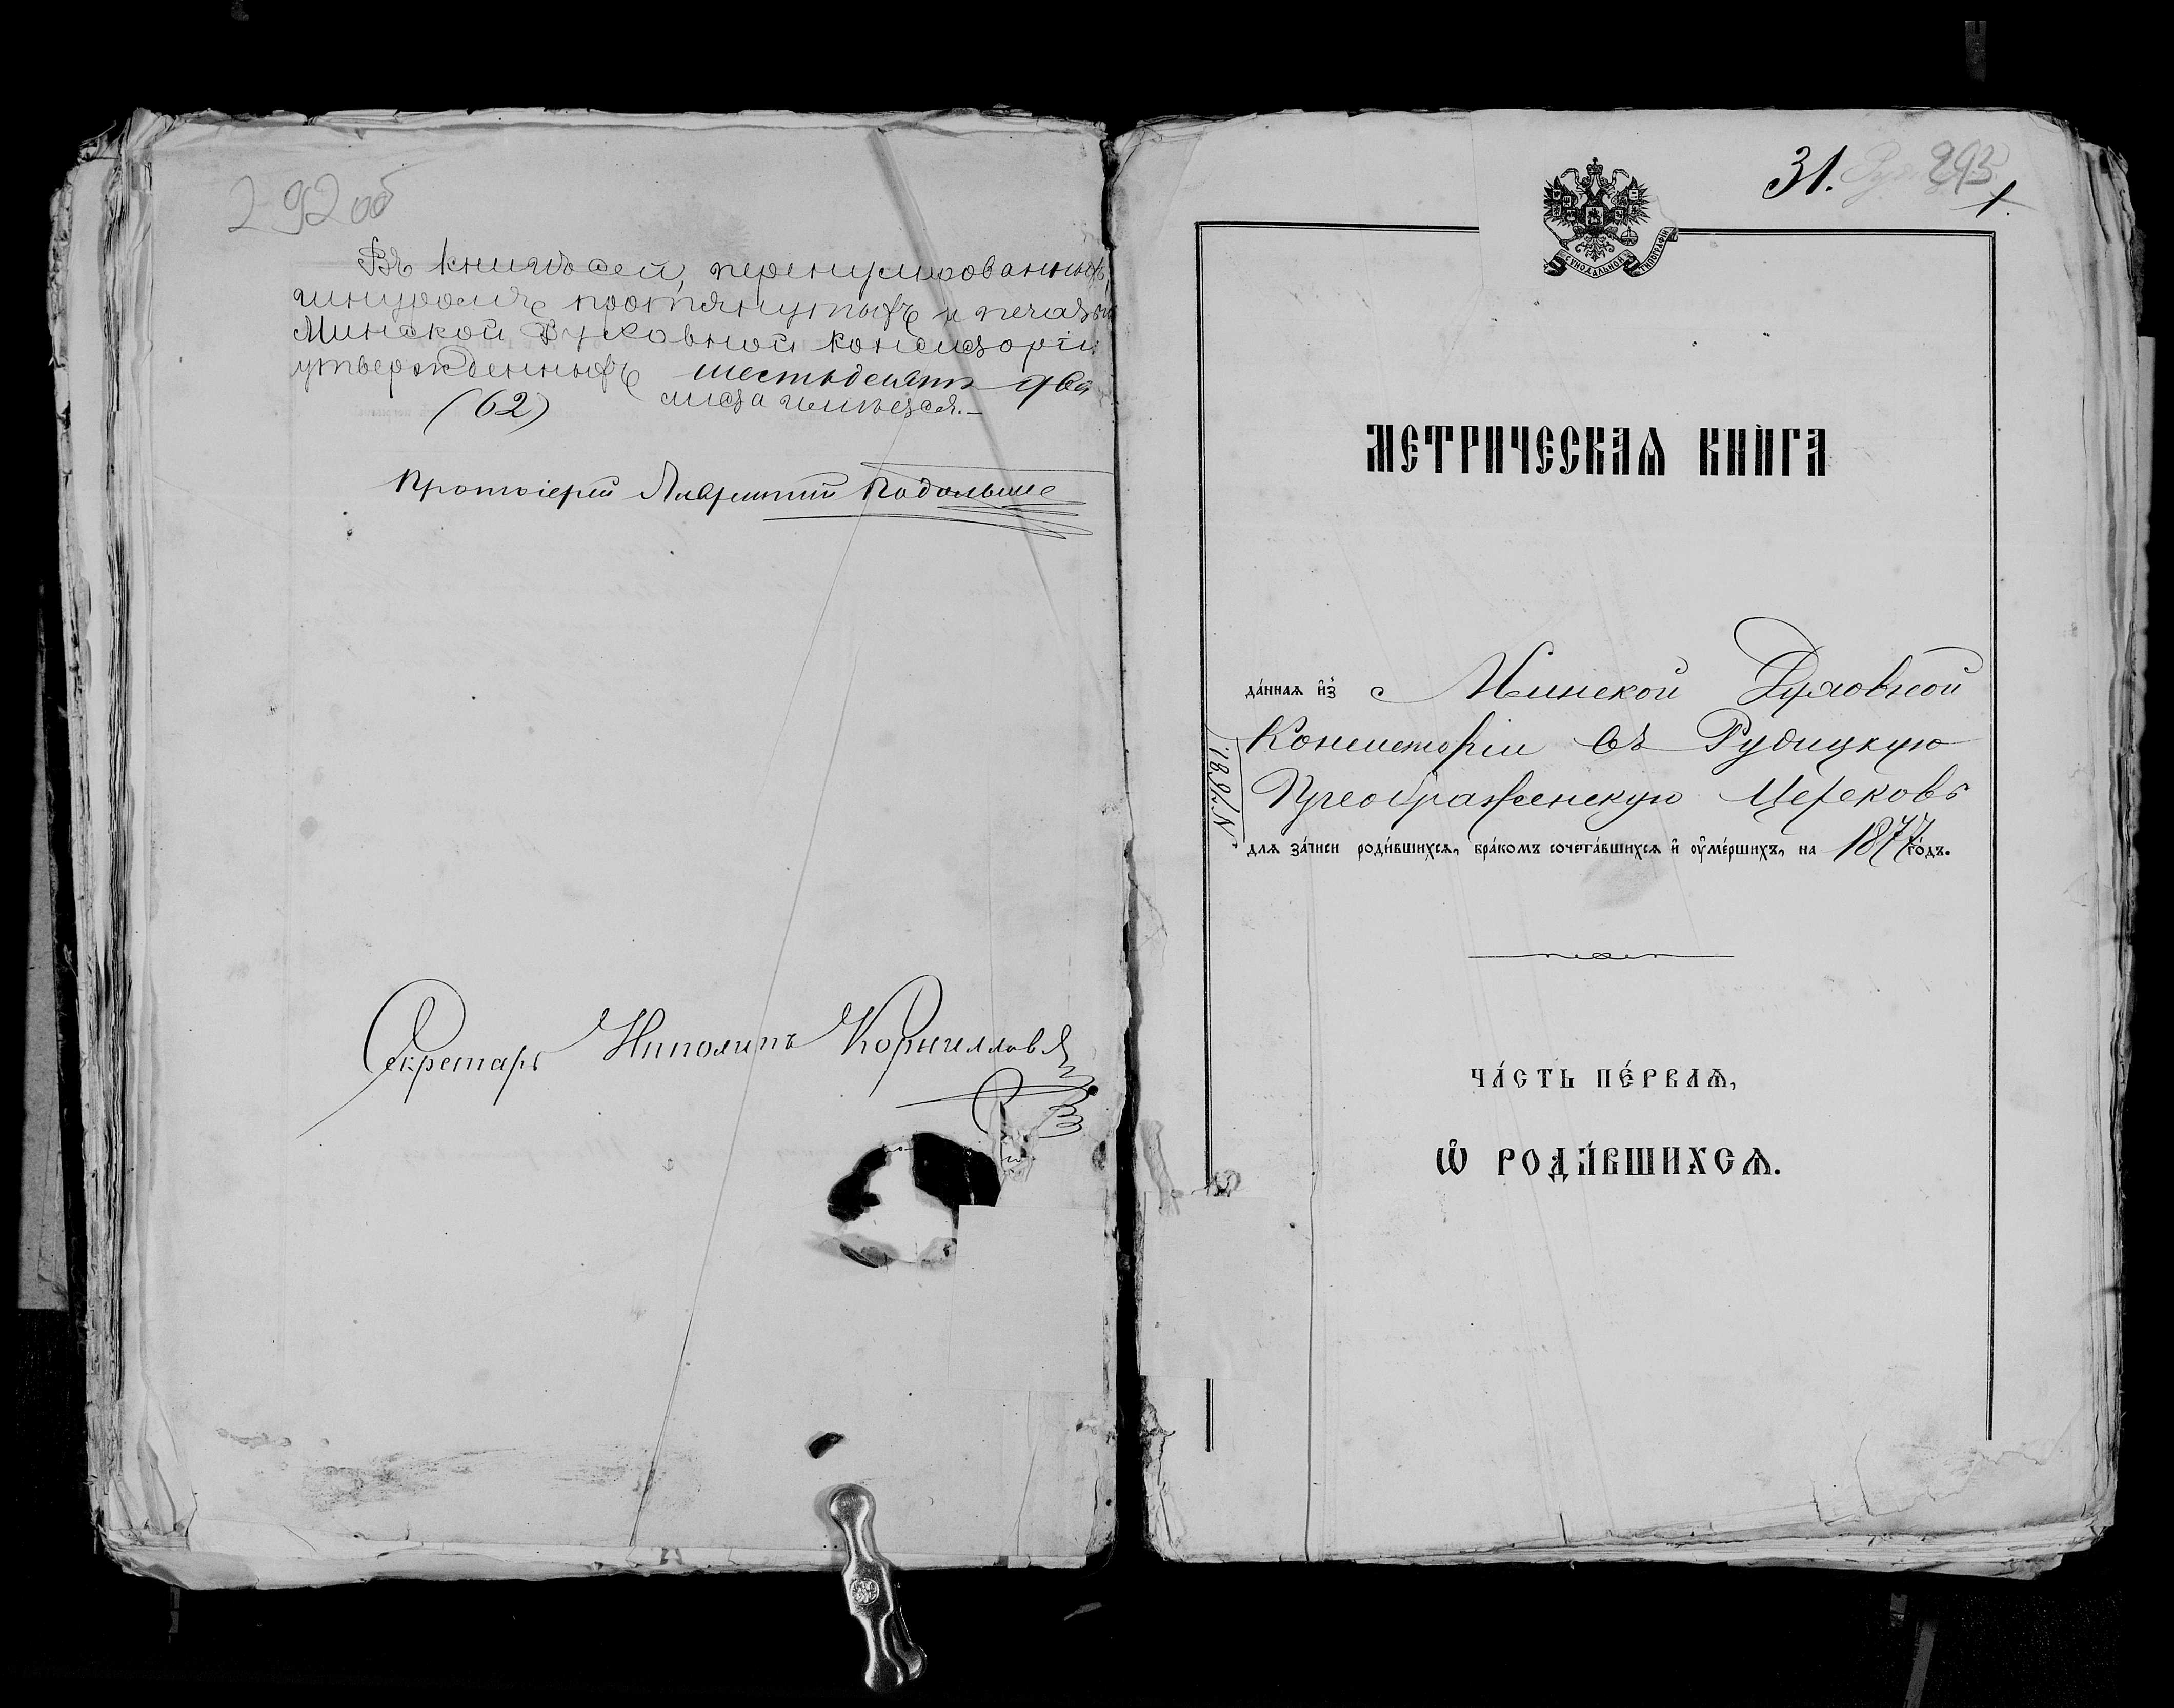 292 об
Въ книгѣ сей, перенумерованныхъ,
шнуромъ протянутыхъ и печатью
Минской Духовной Консисторіи
утвержденныхъ шестьдесятъ два
(62) листа имѣется.—
Протоіерей
Секретарь Ипполитъ Корнилловъ
31. 293
1.
СѴНОДАЛЬНОЙ ТИПОГРАФІИ
МЕТРИЧЕСКАѦ КНИГА
да́ннаѧ и҆з̾ Минской Духовной
Консисторіи въ Рудицкую
Преображенскую Церковь
для за́писи роди́вшихсѧ, бра́комъ сочета́вшихсѧ и҆ оу҆ме́ршихъ, на 1877 го́дъ.
ЧА́СТЬ ПЕ́РВАѦ,
Ѽ РОДИ́ВШИХСѦ.